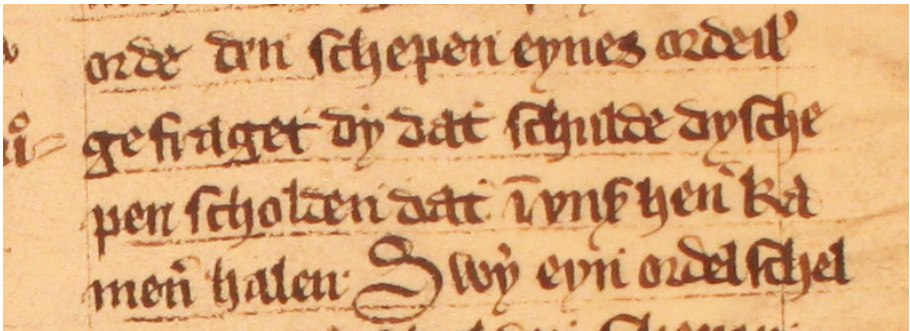 orde den schepen eynes ordeils
gefraget dy dat schulde dy sche
pen scholden dat in vnß hen ka
men halen Swy eyn ordel schel